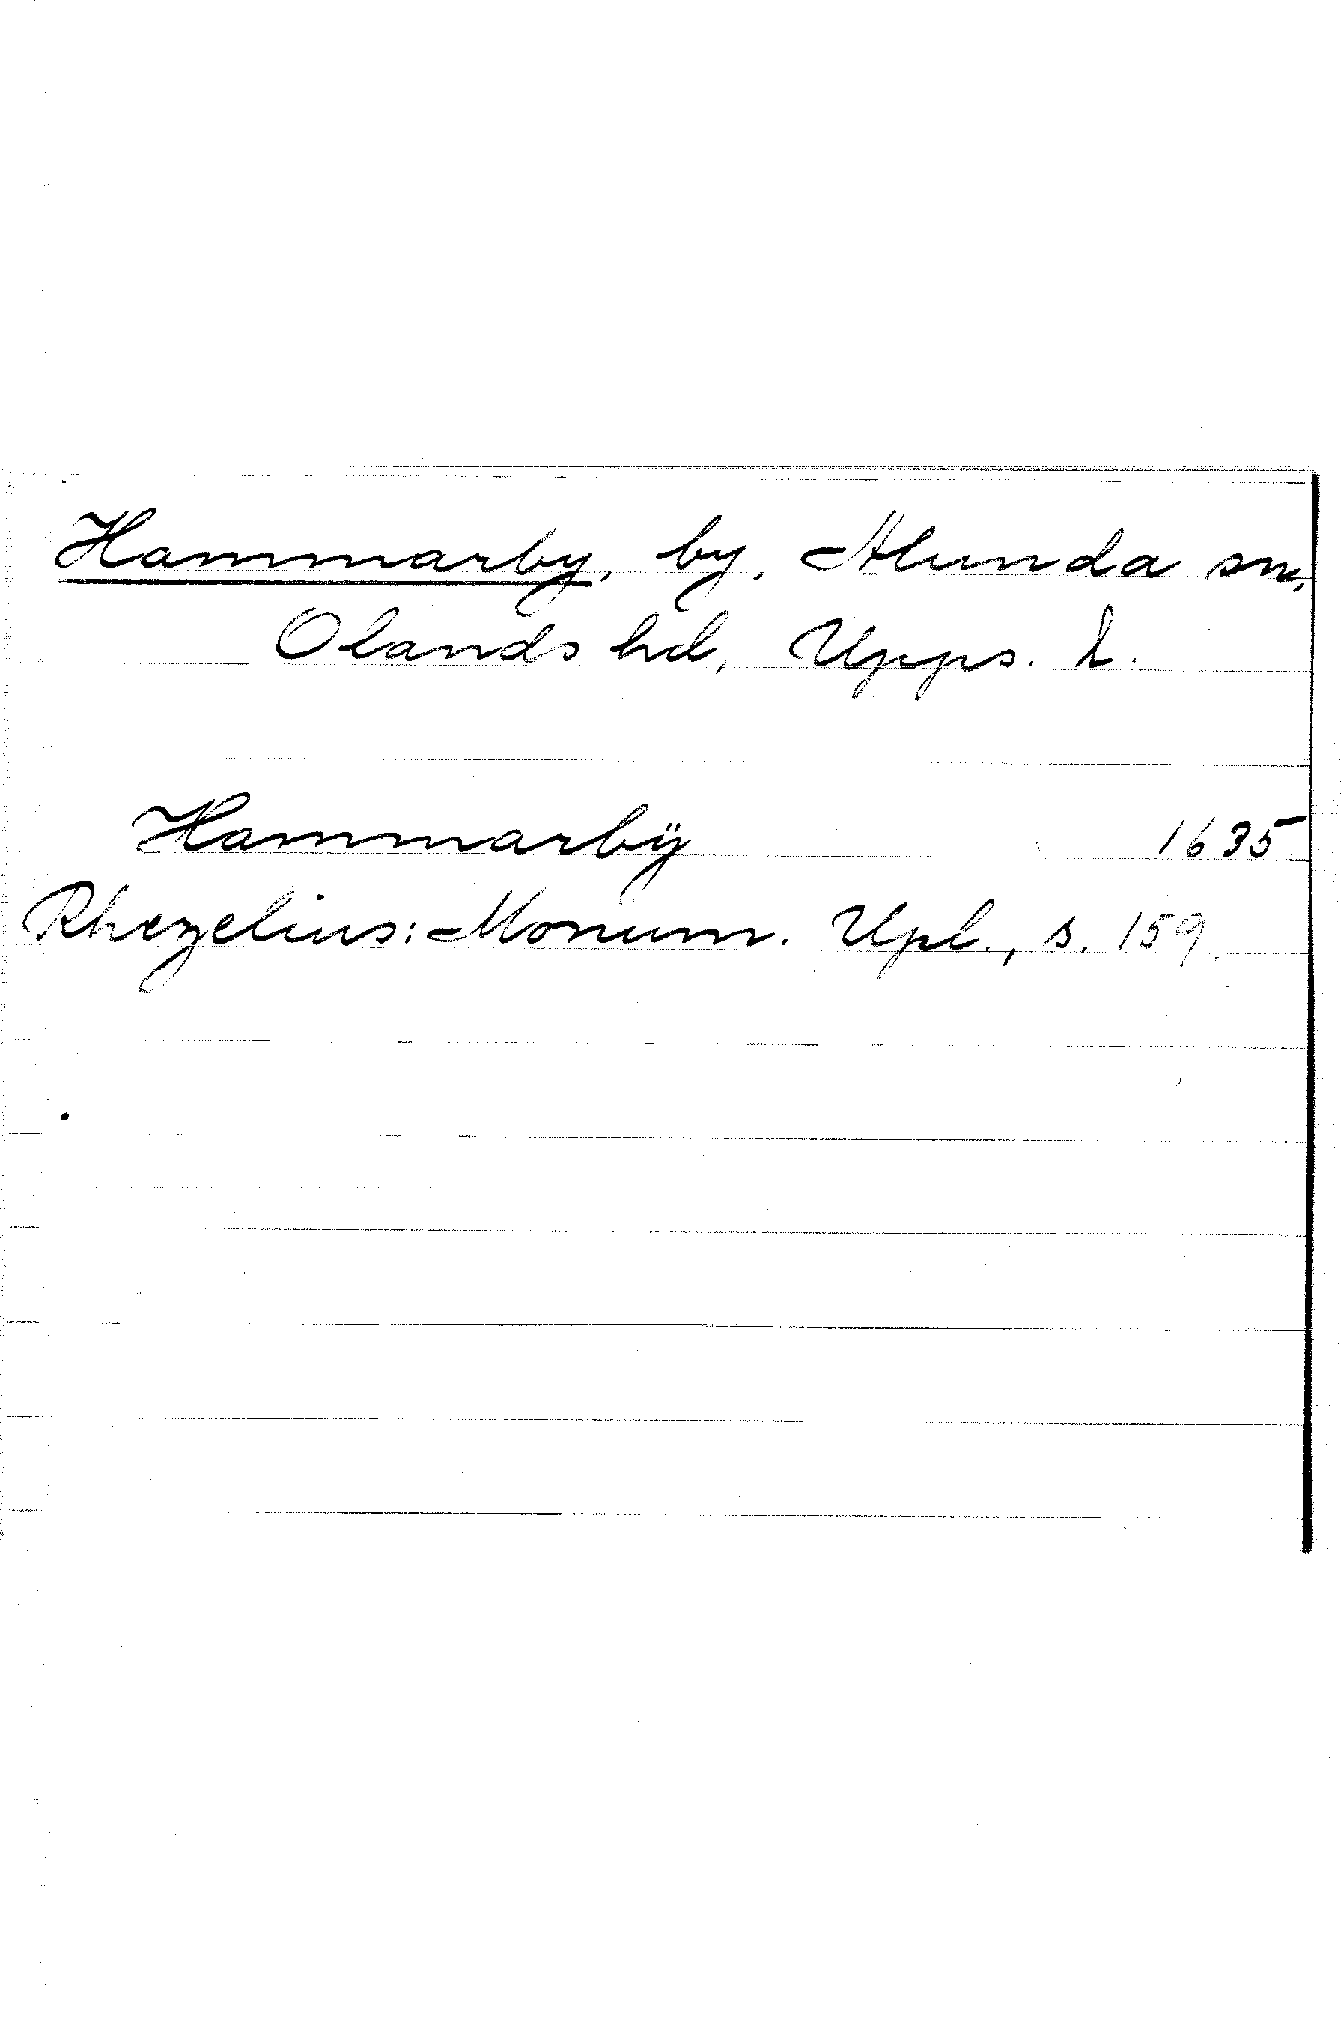 Hammarby, by, Alunda sn,
Olands hd, Upps. L.
Hammarbÿ 1635
Rhezelius: Monum. Upl., s. 159.